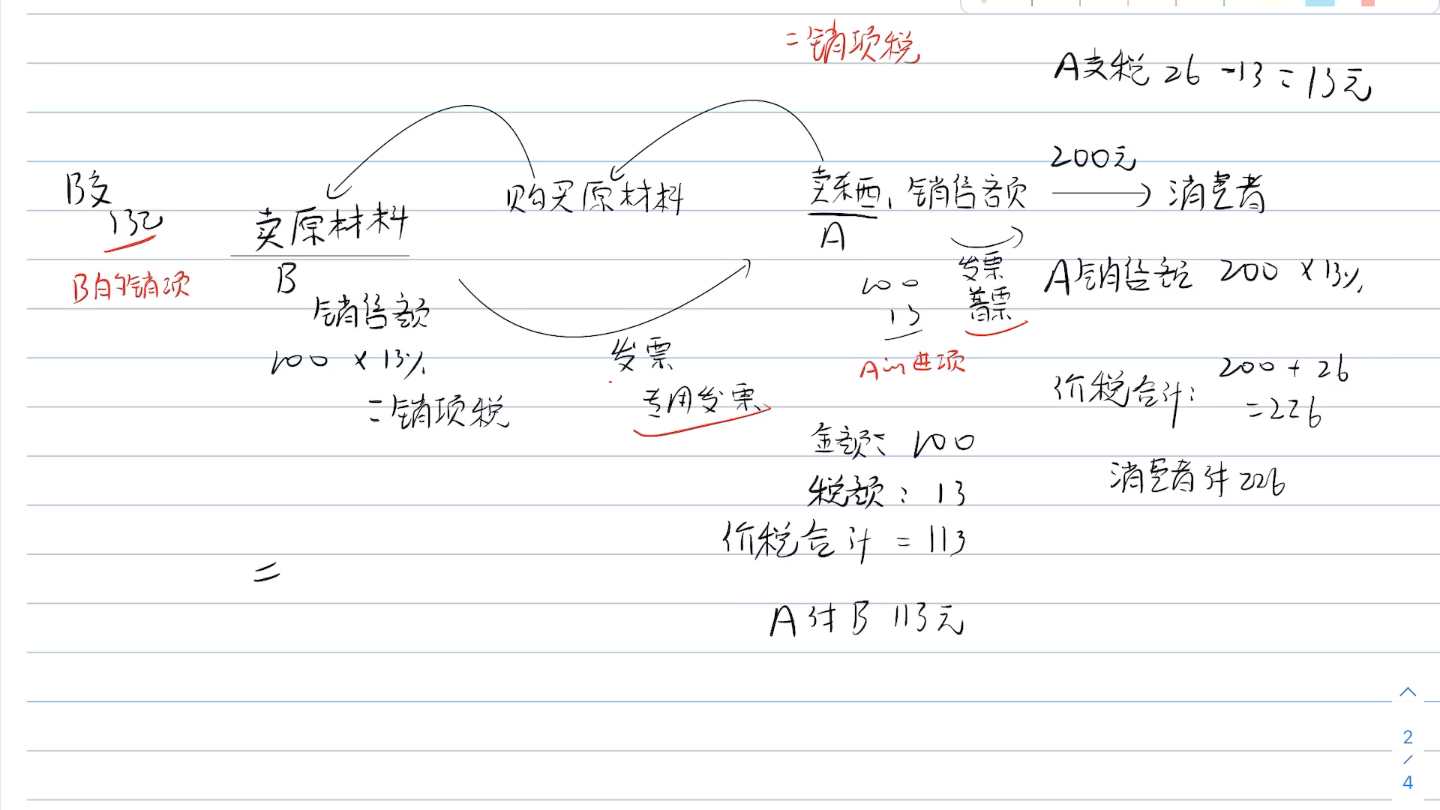 =销项税
A支税 26 -13 = 13元
B交
13元
B的销项
卖原材料
B
销售额
100 × 13%
=销项税
购买原材料
卖东西, 销售额
A
200元
消费者
发票
普票
100
13
A的进项
发票
专用发票
金额: 100
税额: 13
价税合计 = 113
A付B 113元
A销售额 200 × 13%
价税合计: 200 + 26
=226
消费者付 226
=
2
/
4